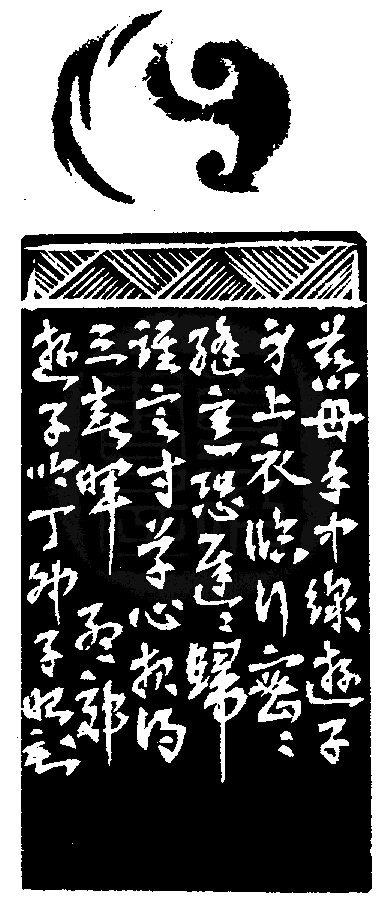 慈母手中線遊子
身上衣臨行密〻
縫意恐遲〻歸
誰言寸草心報得
三春暉 孟郊
遊子吟丁卯子